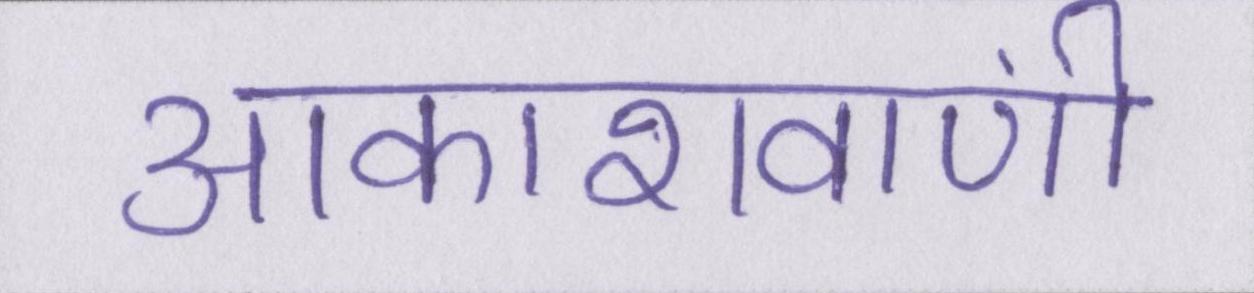 आकाशवाणीं